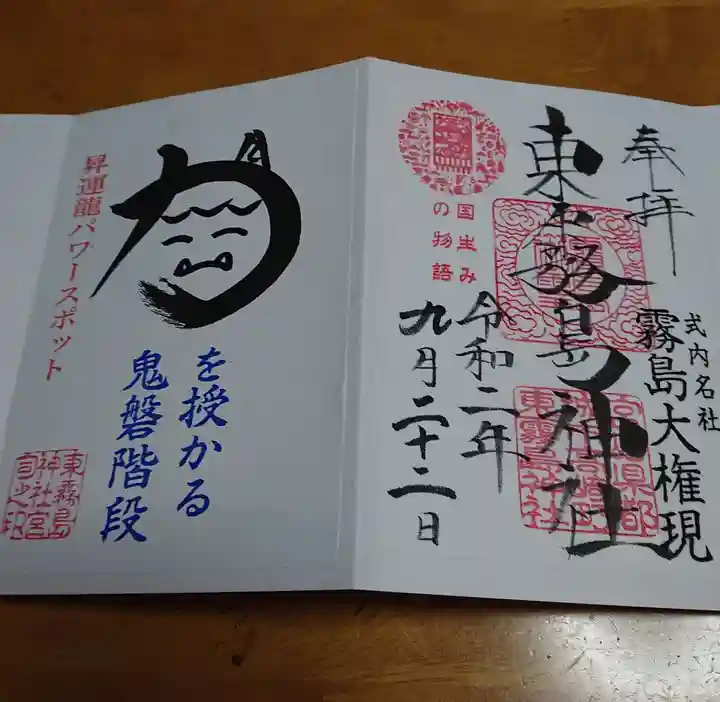 奉拝
式内名社
霧島大権現
東霧島神社
国生み
の物語
令和二年
九月二十二日
力
を授かる
鬼磐階段
昇運龍パワースポット
東霧島
神社宮
司之印